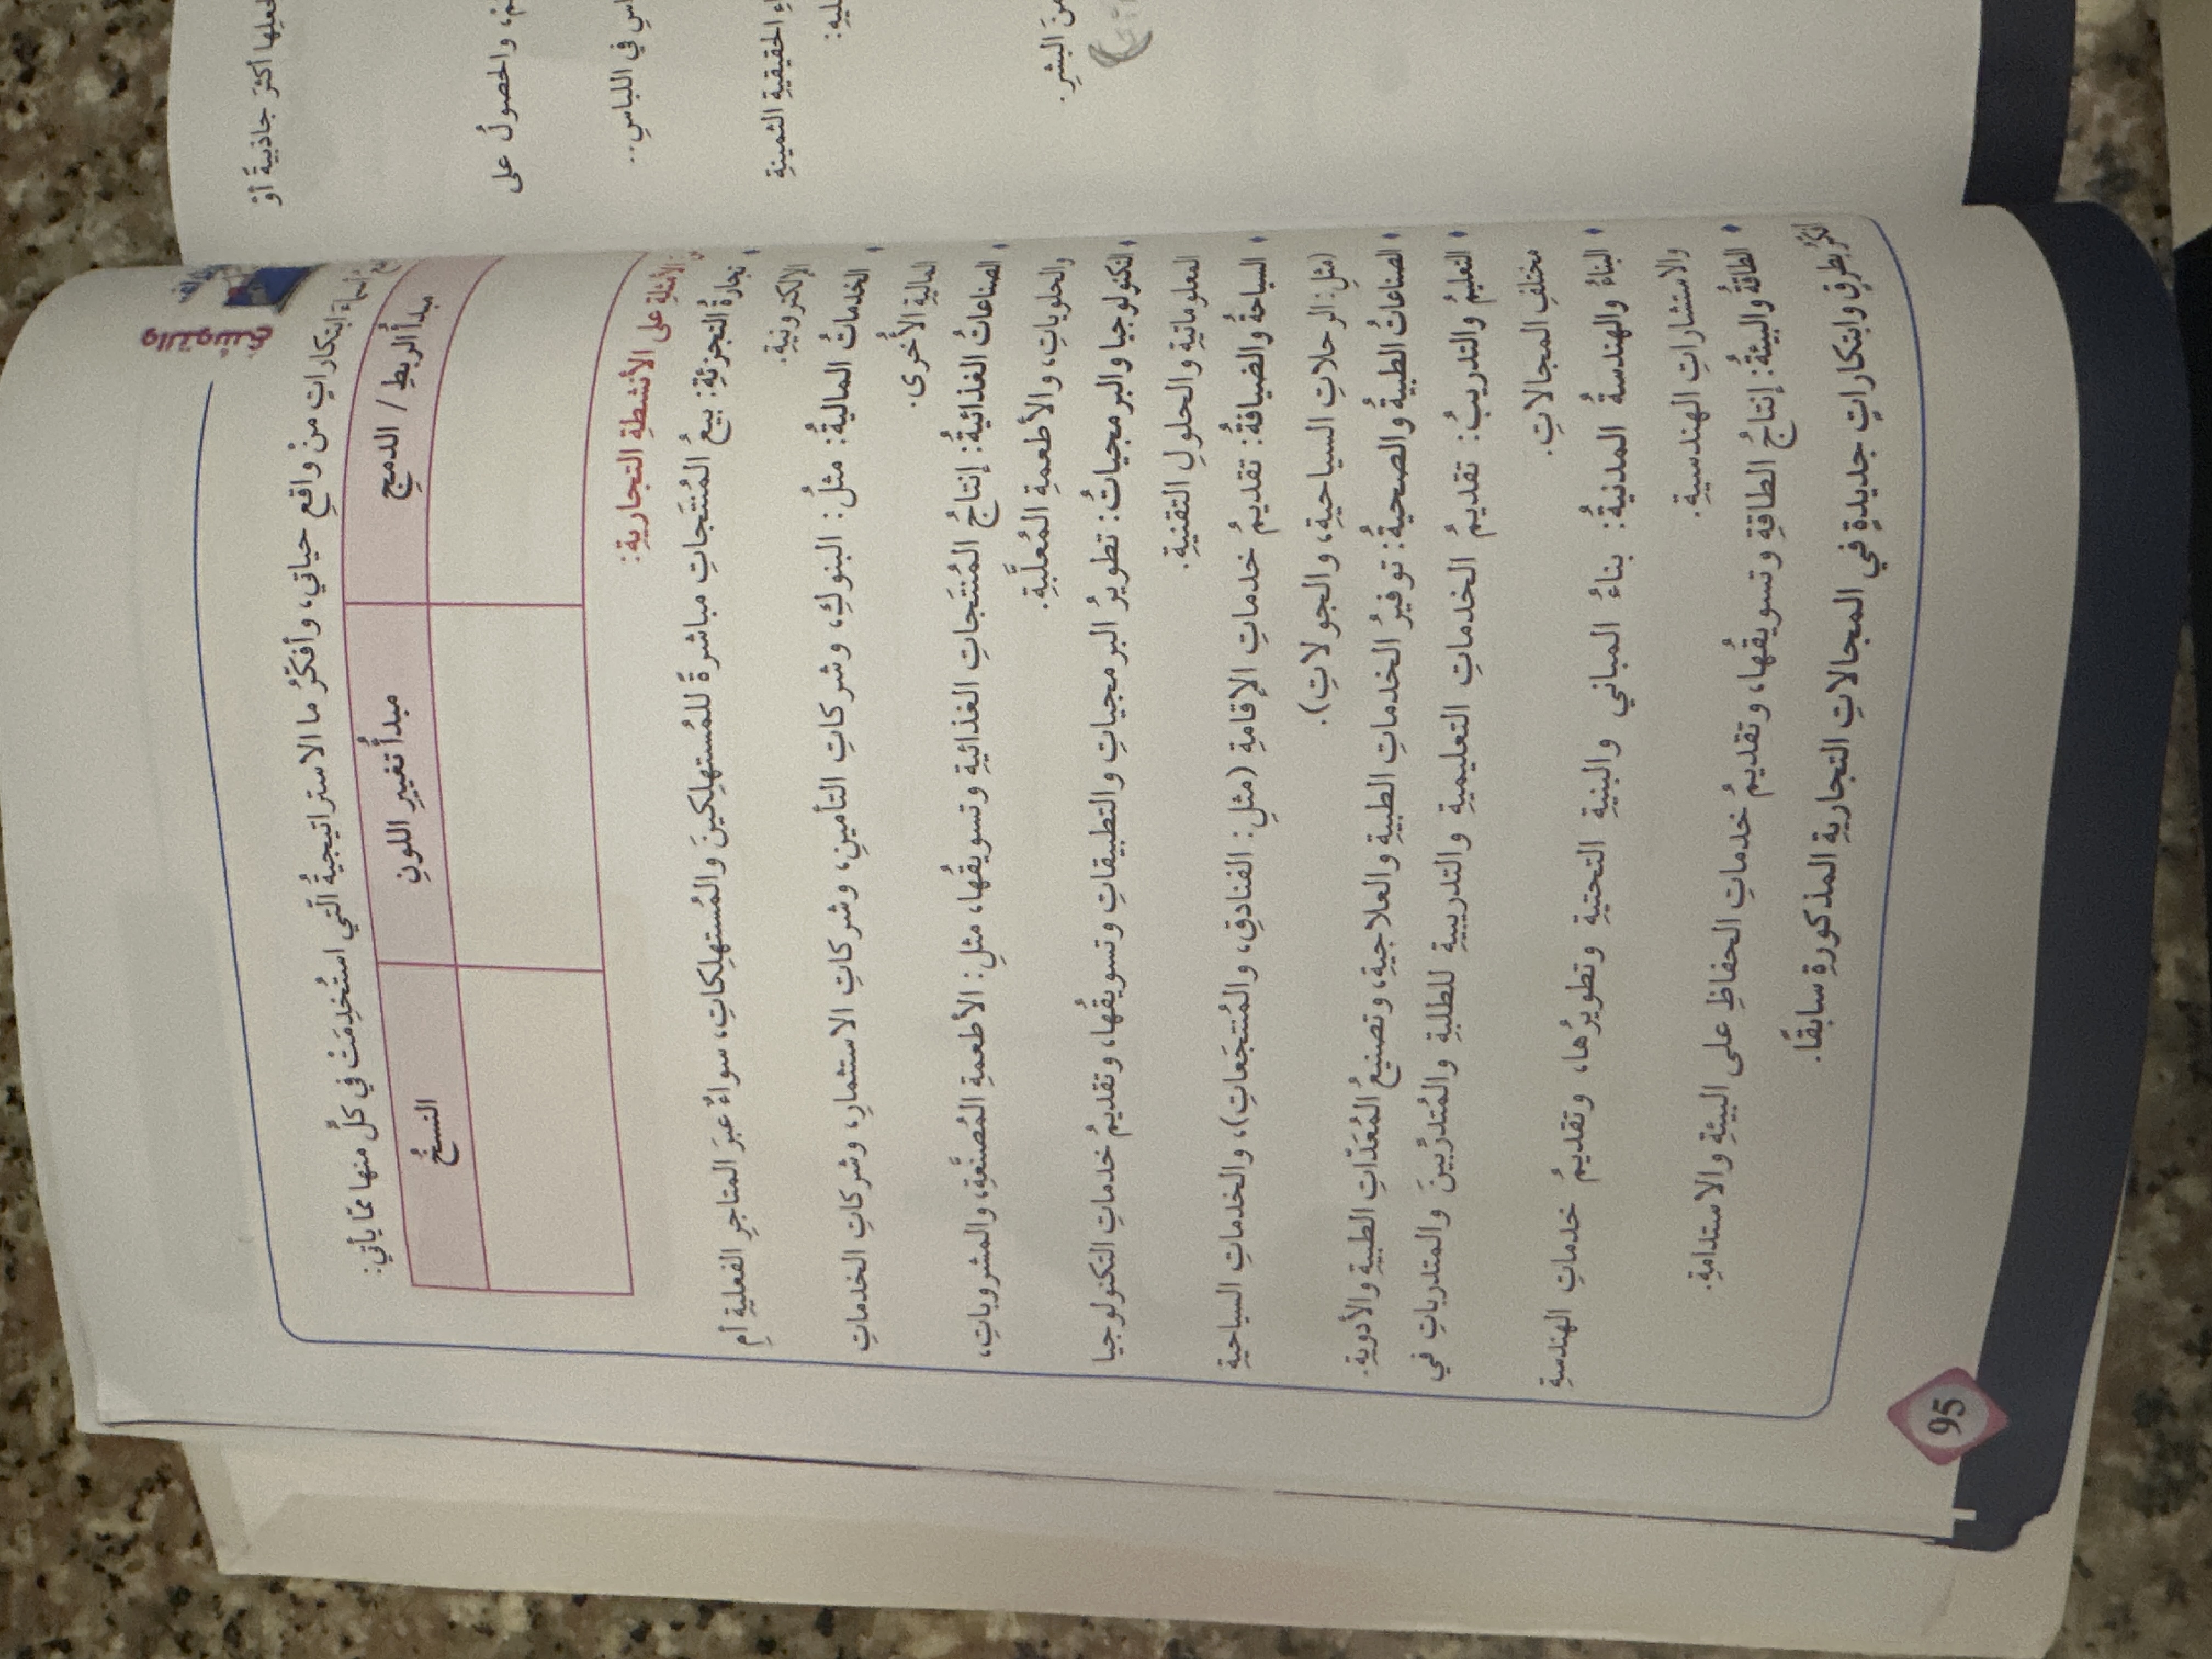 والتوسّع
ابتكاراتٍ منْ واقعِ حياتي، وأفكّرُ ما الاستراتيجيةُ الّتي استُخدِمَتْ في كلٍّ منها ممّا يأتي:
مبدأُ الربطِ / الدمجِ
مبدأُ تغييرِ اللونِ
النسخُ
الأمثلةِ على الأنشطةِ التجاريةِ:
تجارةُ التجزئةِ: بيعُ المُنتَجاتِ مباشرةً للمُستهلِكينَ والمُستهلِكاتِ، سواءٌ عبرَ المتاجرِ الفعليةِ أمِ
الإلكترونيةِ.
الخدماتُ الماليةُ: مثلُ: البنوكِ، وشركاتِ التأمينِ، وشركاتِ الاستثمارِ، وشركاتِ الخدماتِ
الماليةِ الأُخرى.
الصناعاتُ الغذائيةُ: إنتاجُ المُنتَجاتِ الغذائيةِ وتسويقُها، مثلِ: الأطعمةِ المُصنَّعةِ، والمشروباتِ،
والحلوياتِ، والأطعمةِ المُعلَّبةِ.
التكنولوجيا والبرمجياتُ: تطويرُ البرمجياتِ والتطبيقاتِ وتسويقُها، وتقديمُ خدماتِ التكنولوجيا
المعلوماتيةِ والحلولِ التقنيةِ.
السياحةُ والضيافةُ: تقديمُ خدماتِ الإقامةِ (مثلِ: الفنادقِ، والمُنتجَعاتِ)، والخدماتِ السياحيةِ
(مثلِ: الرحلاتِ السياحيةِ، والجولاتِ).
الصناعاتُ الطبيةُ والصحيةُ: توفيرُ الخدماتِ الطبيةِ والعلاجيةِ، وتصنيعُ المُعَدّاتِ الطبيةِ والأدويةِ.
التعليمُ والتدريبُ: تقديمُ الخدماتِ التعليميةِ والتدريبيةِ للطلبةِ والمُتدرِّبينَ والمتدرباتِ في
مختلفِ المجالاتِ.
البناءُ والهندسةُ المدنيةُ: بناءُ المباني والبنيةِ التحتيةِ وتطويرُها، وتقديمُ خدماتِ الهندسةِ
والاستشاراتِ الهندسيةِ.
الطاقةُ والبيئةُ: إنتاجُ الطاقةِ وتسويقُها، وتقديمُ خدماتِ الحفاظِ على البيئةِ والاستدامةِ.
أفكّرُ بطرقٍ وابتكاراتٍ جديدةٍ في المجالاتِ التجاريةِ المذكورةِ سابقًا.
95
أكثرَ جاذبيةً أوْ
والحصولُ على
في اللباسِ..
الحقيقيةِ الثمينةِ
البشرِ.